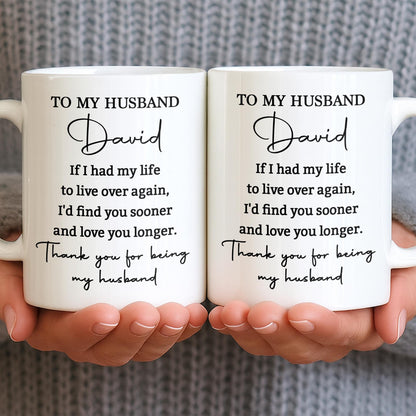 TO MY HUSBAND
David
If I had my life
to live over again,
I'd find you sooner
and love you longer.
Thank you for being
my husband
TO MY HUSBAND
David
If I had my life
to live over again,
I'd find you sooner
and love you longer.
Thank you for being
my husband